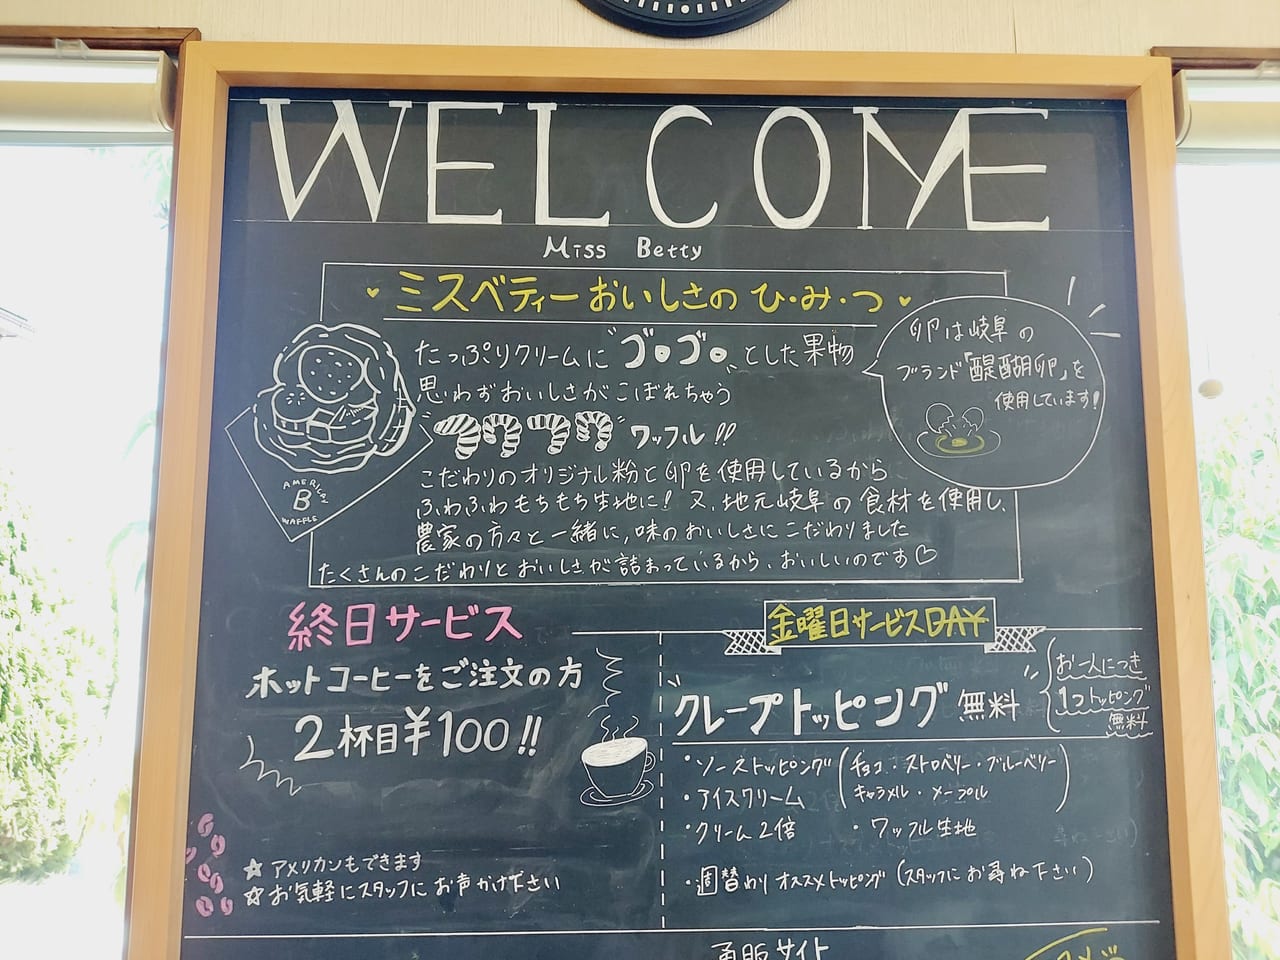 WELCOME
Miss Betty
ミスベティーおいしさの ひ・み・つ
たっぷりクリームに "ゴロゴロ" とした果物
思わずおいしさがこぼれちゃう
"フワフワ" ワッフル!!
こだわりのオリジナル粉と卵を使用しているから
ふわふわもちもち生地に! 又、地元岐阜の食材を使用し、
農家の方々と一緒に、味のおいしさにこだわりました
たくさんのこだわりとおいしさが詰まっているから、おいしいのです♡
卵は岐阜の
ブランド「醍醐卵」を
使用しています!
AMERICAN
B
WAFFLE
終日サービス
ホットコーヒーをご注文の方
2杯目¥100!!
☆ アメリカンもできます
☆ お気軽にスタッフにお声かけ下さい
金曜日サービスDAY
クレープトッピング 無料
お一人につき
1つトッピング
無料
・ソーストッピング (チョコ・ストロベリー・ブルーベリー
キャラメル・メープル)
・アイスクリーム
・クリーム2倍 ・ワッフル生地
・週替わりオススメトッピング (スタッフにお尋ね下さい)
通販サイト